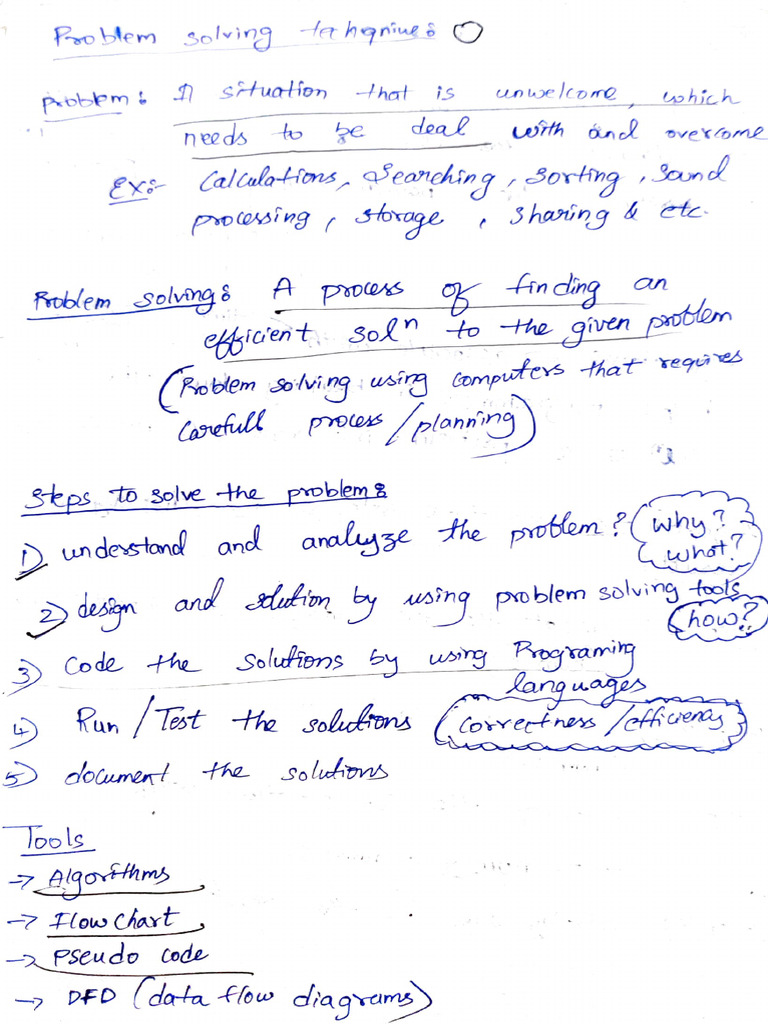 Problem solving tehqniue:
problem: A situation that is unwelcome, which
needs to be deal with and overcome
Ex:- Calculations, Searching, Sorting, Sound
processing, storage, sharing & etc.
Problem solving: A process of finding an
efficient solⁿ to the given problem
(Problem solving using computers that requires
carefull process/planning)
Steps to solve the problem:
1) understand and analyze the problem? (why?
what?)
2) design and solution by using problem solving tools
(how?)
3) Code the solutions by using Programing
languages
4) Run/Test the solutions (correctness/efficiency)
5) document the solutions
Tools
→ Algorithms
→ Flow chart
→ Pseudo code
→ DFD (data flow diagrams)